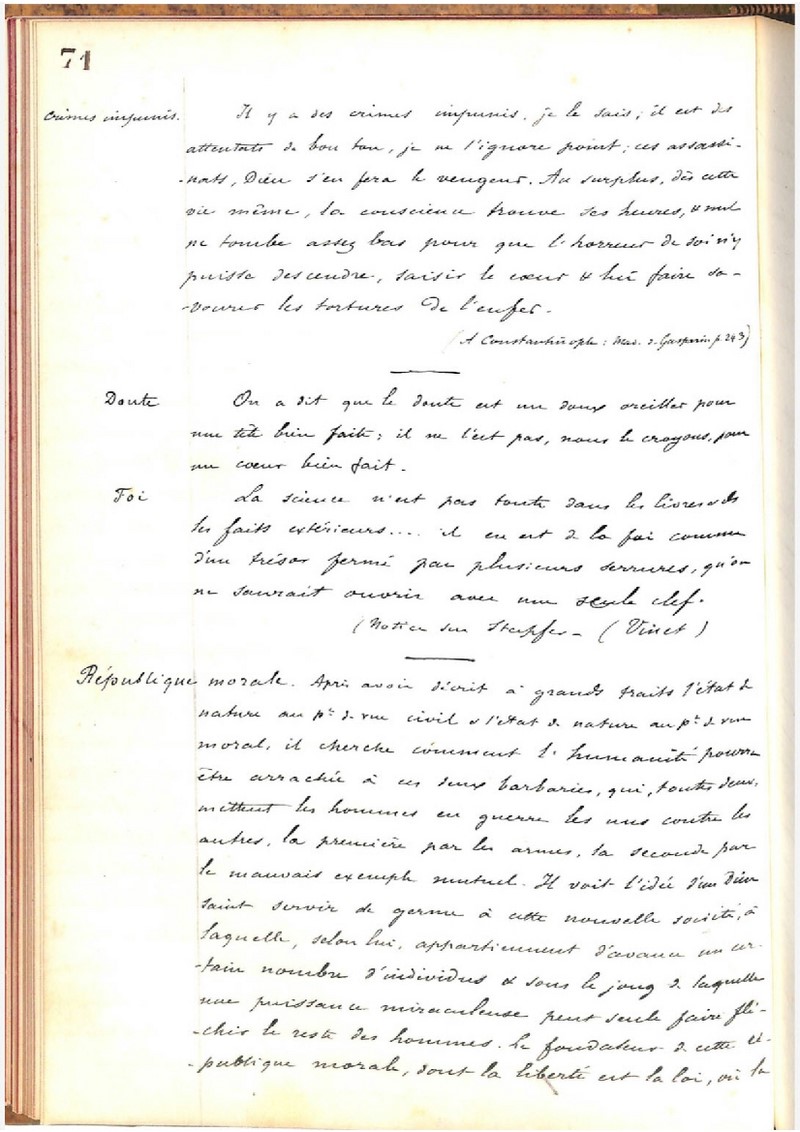 71
Crimes impunis. Il y a des crimes impunis. je le sais; il est des
attentats de bon ton, je ne l'ignore point; ces assassi-
-nats, Dieu s'en fera le vengeur. Au surplus, dès cette
vie même, la conscience trouve ses heures, & nul
ne tombe assez bas pour que l'horreur de soi n'y
puisse descendre, saisir le cœur & lui faire sa-
-vourer les tortures de l'enfer.
(A Constantinople: Mad. de Gasparin p. 243)
Doute On a dit que le doute est un doux oreiller pour
une tête bien faite; il ne l'est pas, nous le croyons, pour
un cœur bien fait.
Foi La science n'est pas toute dans les livres & ds
les faits extérieurs.... il en est de la foi comme
d'un trésor fermé par plusieurs serrures, qu'on
ne saurait ouvrir avec une seule clef.
(Notice sur Stapfer - (Vinet)
République morale. Après avoir décrit à grands traits l'état de
nature au pt de vue civil & l'état de nature au pt de vue
moral, il cherche comment l'humanité pourra
être arrachée à ces deux barbaries, qui, toutes deux,
mettent les hommes en guerre les uns contre les
autres, la première par les armes, la seconde par
le mauvais exemple mutuel. Il voit l'idée d'un Dieu
saint servir de germe à cette nouvelle société, à
laquelle, selon lui, appartiennent d'avance un cer-
-tain nombre d'individus & sous le joug de laquelle
une puissance miraculeuse peut seule faire flé-
-chir le reste des hommes. Le fondateur de cette ré-
-publique morale, dont la liberté est la loi, où la